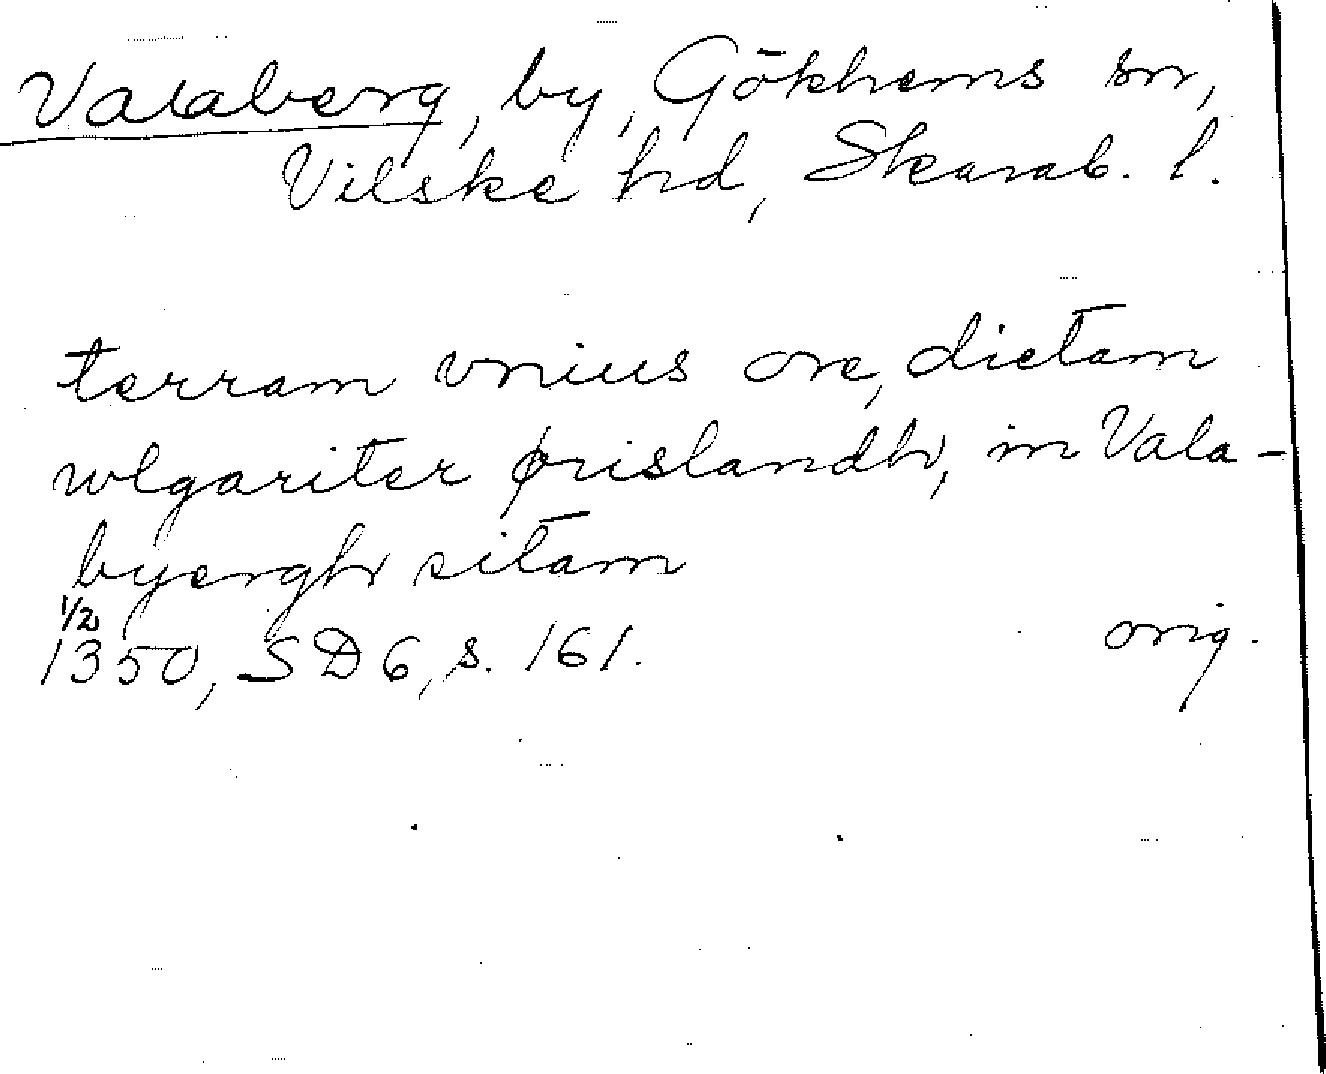 Valaberg, by, Gökhems sn,
Vilske hd, Skarab. l.
terram vnius ore, dictam
wlgariter ørislandh, in Vala-
byergh sitam
1/2
1350, SD 6, s. 161. orig.